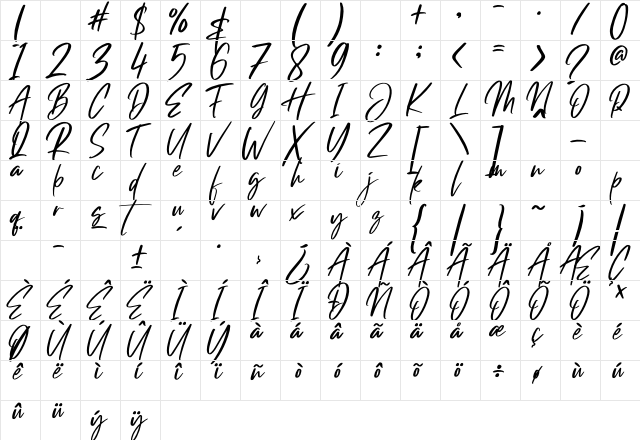 ! # $ % & ( ) + , - . / 0
1 2 3 4 5 6 7 8 9 : ; < = > ? @
A B C D E F G H I J K L M N O P
Q R S T U V W X Y Z [ \ ] _
a b c d e f g h i j k l m n o p
q r s t u v w x y z { | } ~ ¡ ¦
¯ ± · ¿ À Á Â Ã Ä Å Æ Ç
È É Ê Ë Ì Í Î Ï Ð Ñ Ò Ó Ô Õ Ö ×
Ø Ù Ú Û Ü Ý à á â ã ä å æ ç è é
ê ë ì í î ï ñ ò ó ô õ ö ÷ ø ù ú
û ü ý ÿ